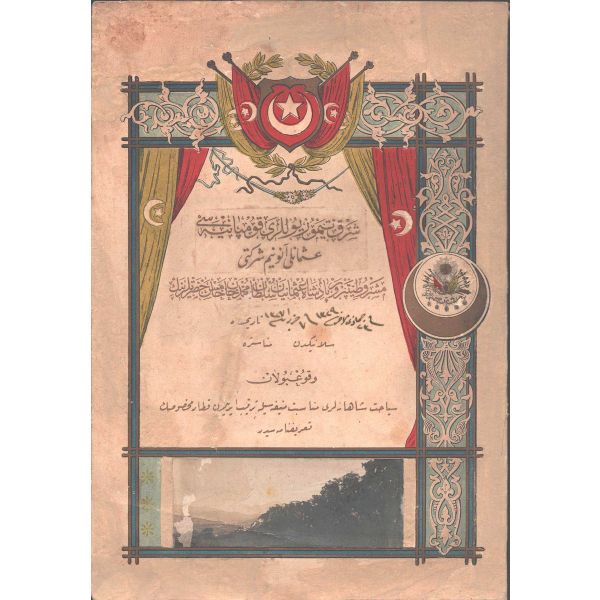 شرق تيمور يوللرى قومپانيه سى
عثمانلى آنونيم شركتى
مشروطيتپرور پادشاه عثمانيان سلطان محمد خان خامس حضرتلرينك
تاريخنده
سلانيكدن مناستره
وقوعبولان
سياحت شاهانه لرى مناسبت منيفه سيله ترتيب ايديلن قطار مخصوصك
تعريفنامه سيدر